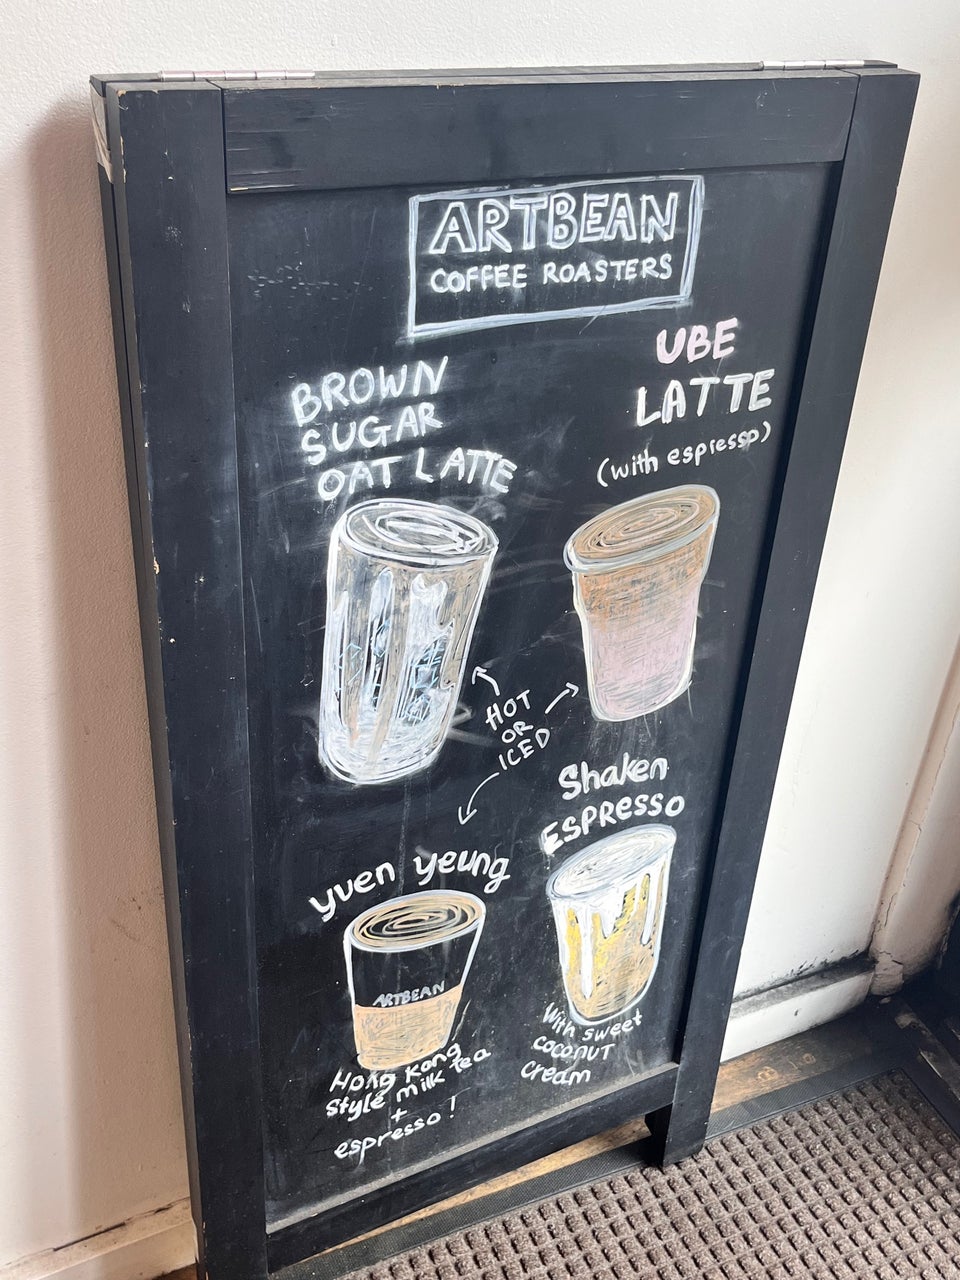 ARTBEAN
COFFEE ROASTERS
BROWN
SUGAR
OAT LATTE
UBE
LATTE
(with espresso)
HOT
OR
ICED
yuen yeung
ARTBEAN
Hong Kong
style milk tea
+
espresso!
Shaken
ESPRESSO
With sweet
coconut
cream